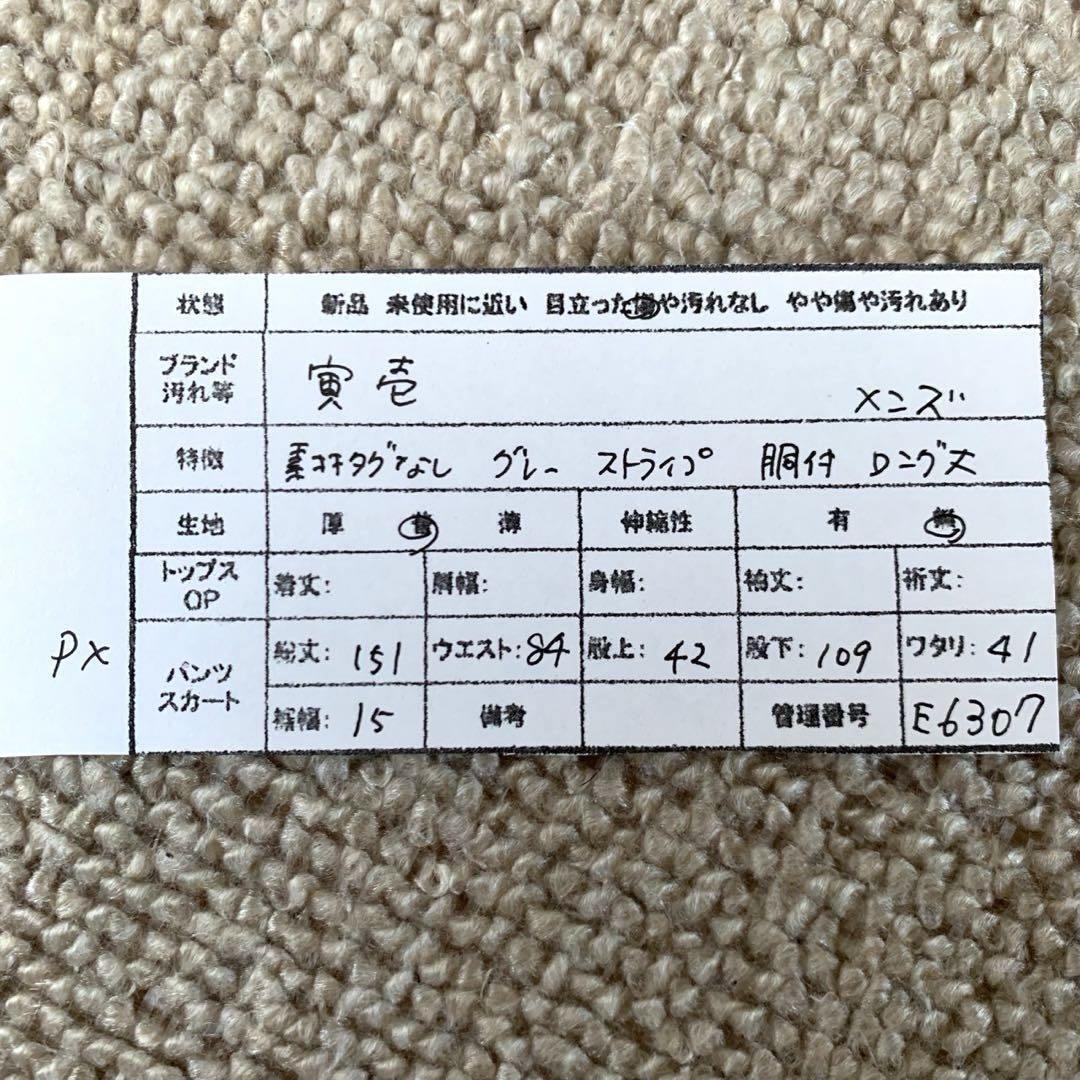 状態 新品 未使用に近い 目立った傷や汚れなし やや傷や汚れあり
ブランド 汚れ等 寅壱 メンズ
特徴 素材タグなし グレー ストライプ 胴付 ロング丈
生地 厚 普 薄 伸縮性 有 無
トップス OP 着丈: 肩幅: 身幅: 袖丈: 裄丈:
PX
パンツ スカート 総丈: 151 ウエスト: 84 股上: 42 股下: 109 ワタリ: 41
裾幅: 15 備考 管理番号 E6307